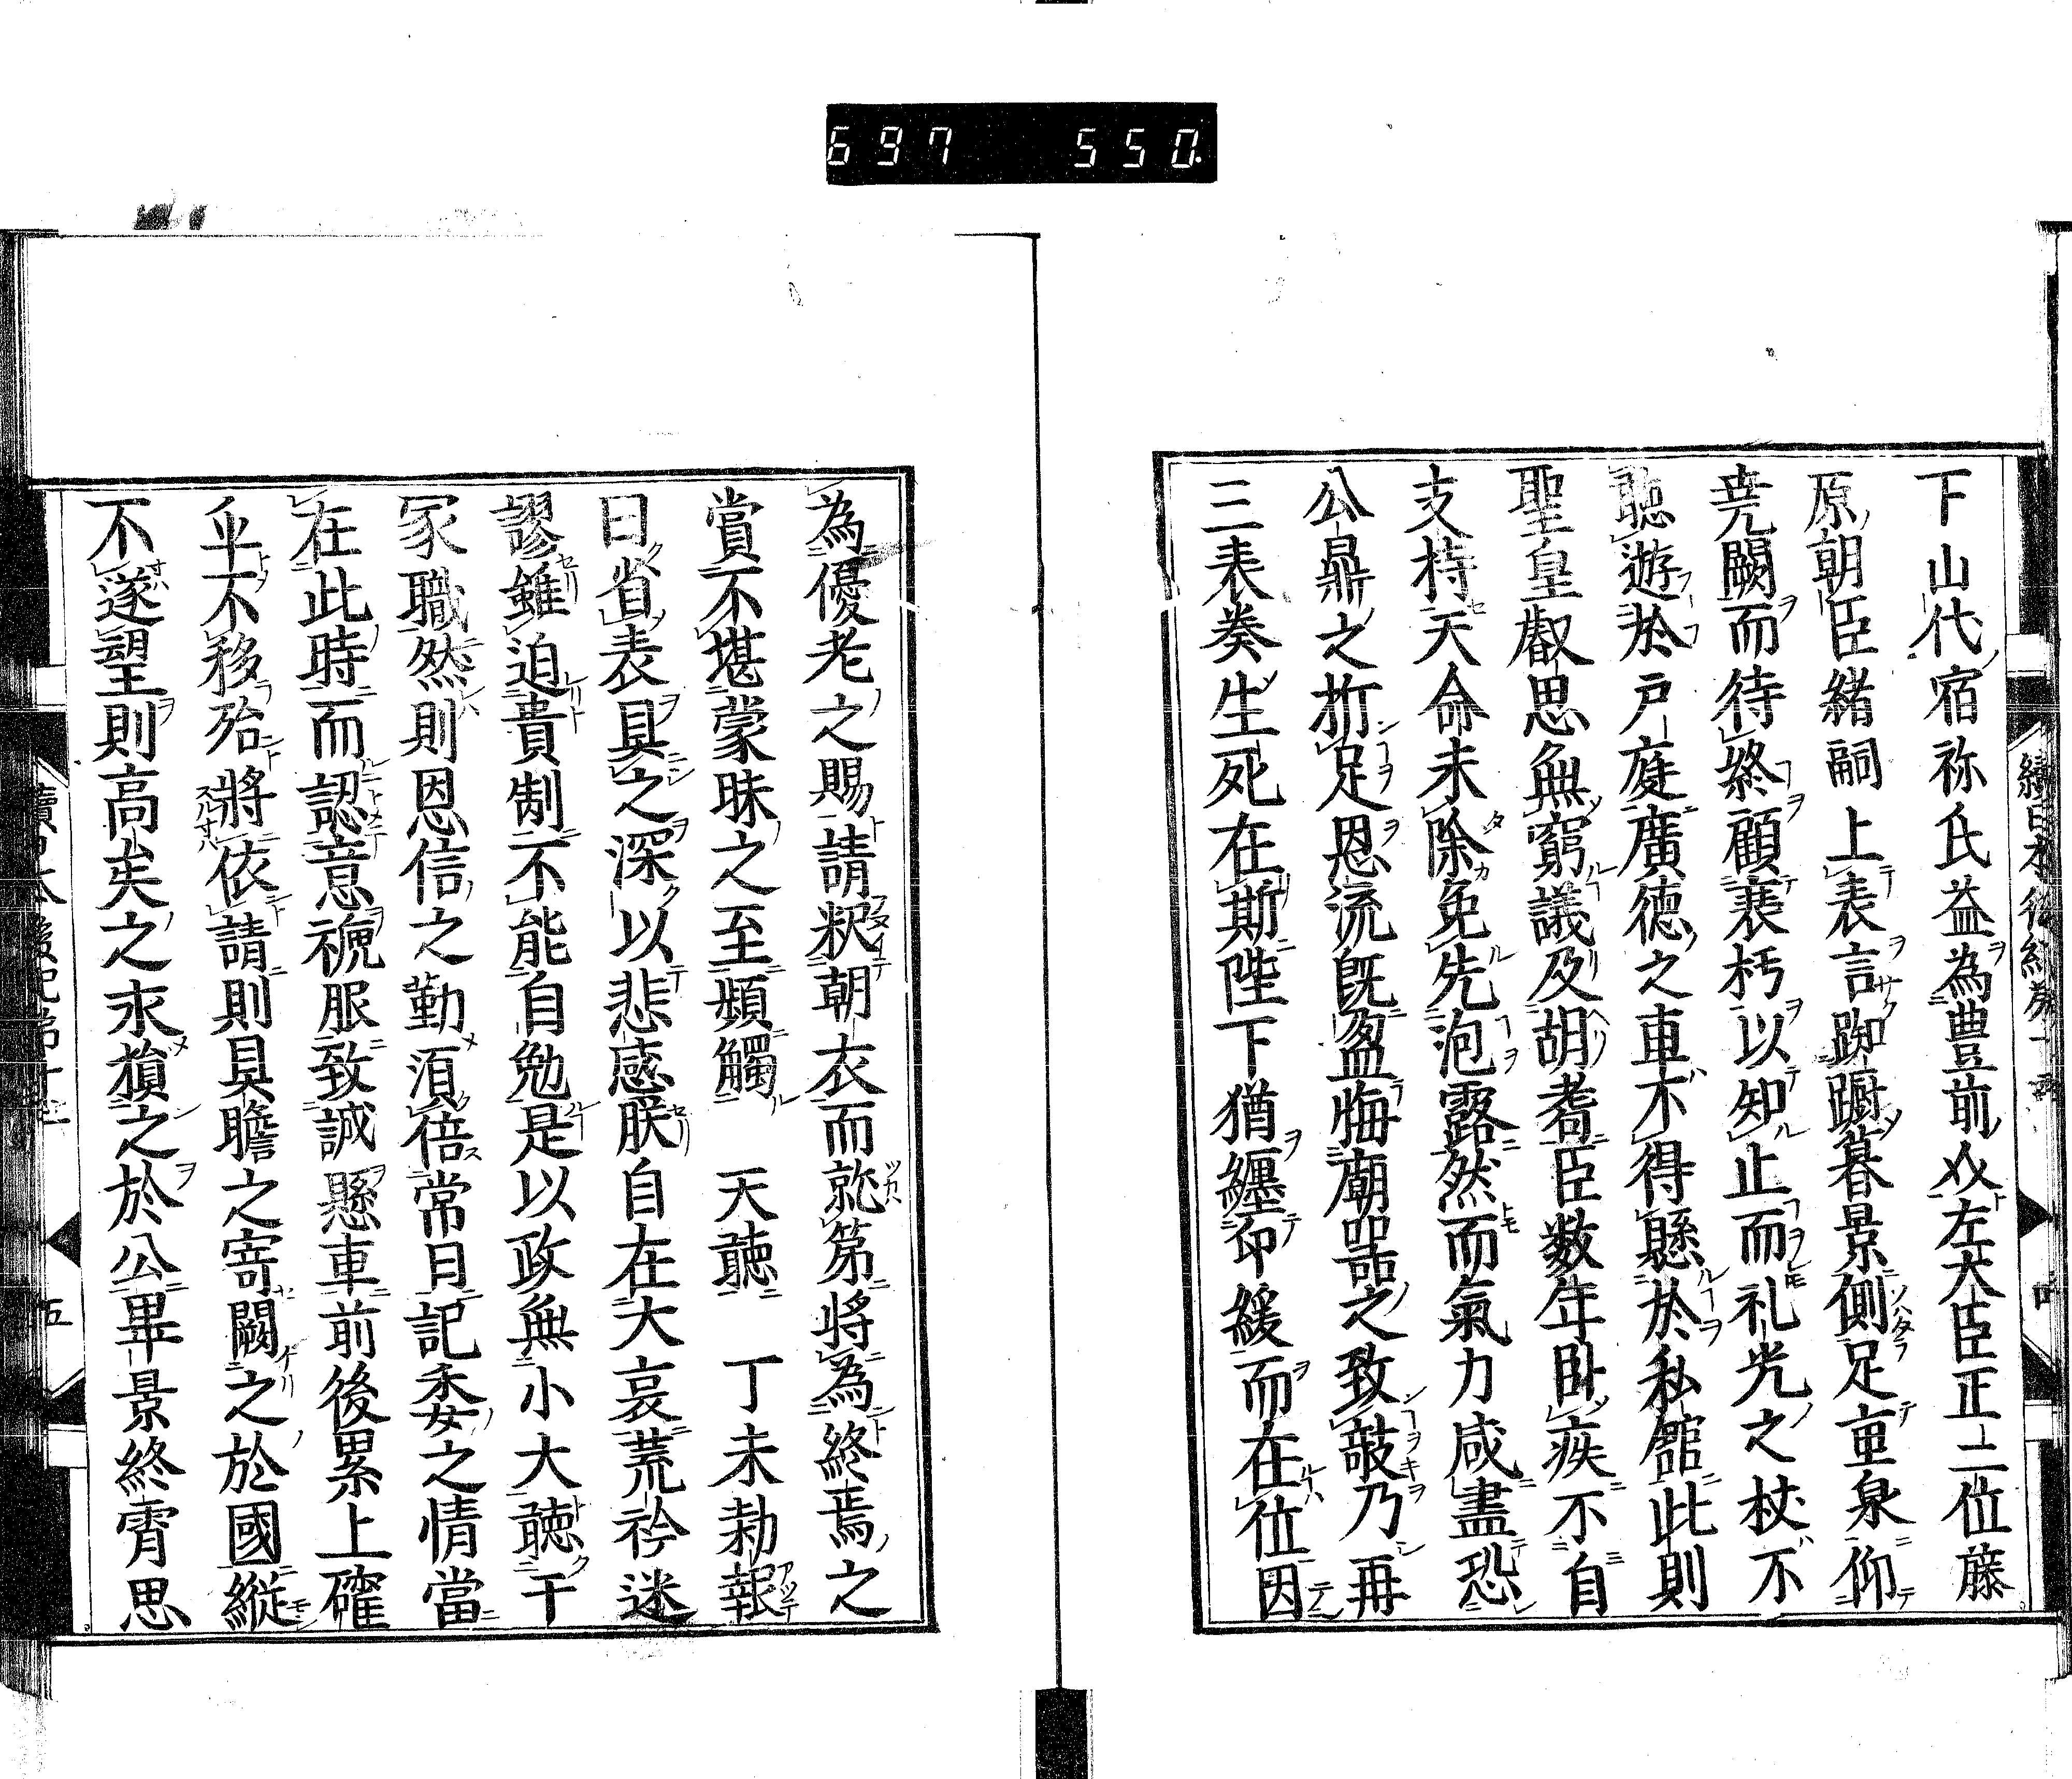 697 550
下山代宿祢氏益為豊前介左大臣正二位藤
原朝臣緒嗣上表言踟蹰暮景側足重泉仰
尭闕而待終顧蓑朽以知止而礼光之杖不
聴遊於戸庭廣徳之車不得懸於私舘此則
聖皇叡思無窮議及胡耇臣数年卧疾不自
支持天命未除免先泡露然而氣力咸盡恐
公鼎之折足恩流既盈悔廟噐之致攲乃再
三表奏生死在斯陛下猶纏印綬而在位因
為優老之賜請釈朝衣而就第将為終焉之
賞不堪蒙昧之至頻觸天聴丁未勅報
曰省表具之深以悲感朕自在大哀荒衿迷
謬雖迫貴制不能自勉是以政無小大聴于
冢職然則恩信之勤湏倍常日記委之情當
在此時而認意褫服致誠懸車前後累上確
乎不移殆將依請則具瞻之寄闕之於國縦
不遂望則高矣之求損之於公畢景終霄思